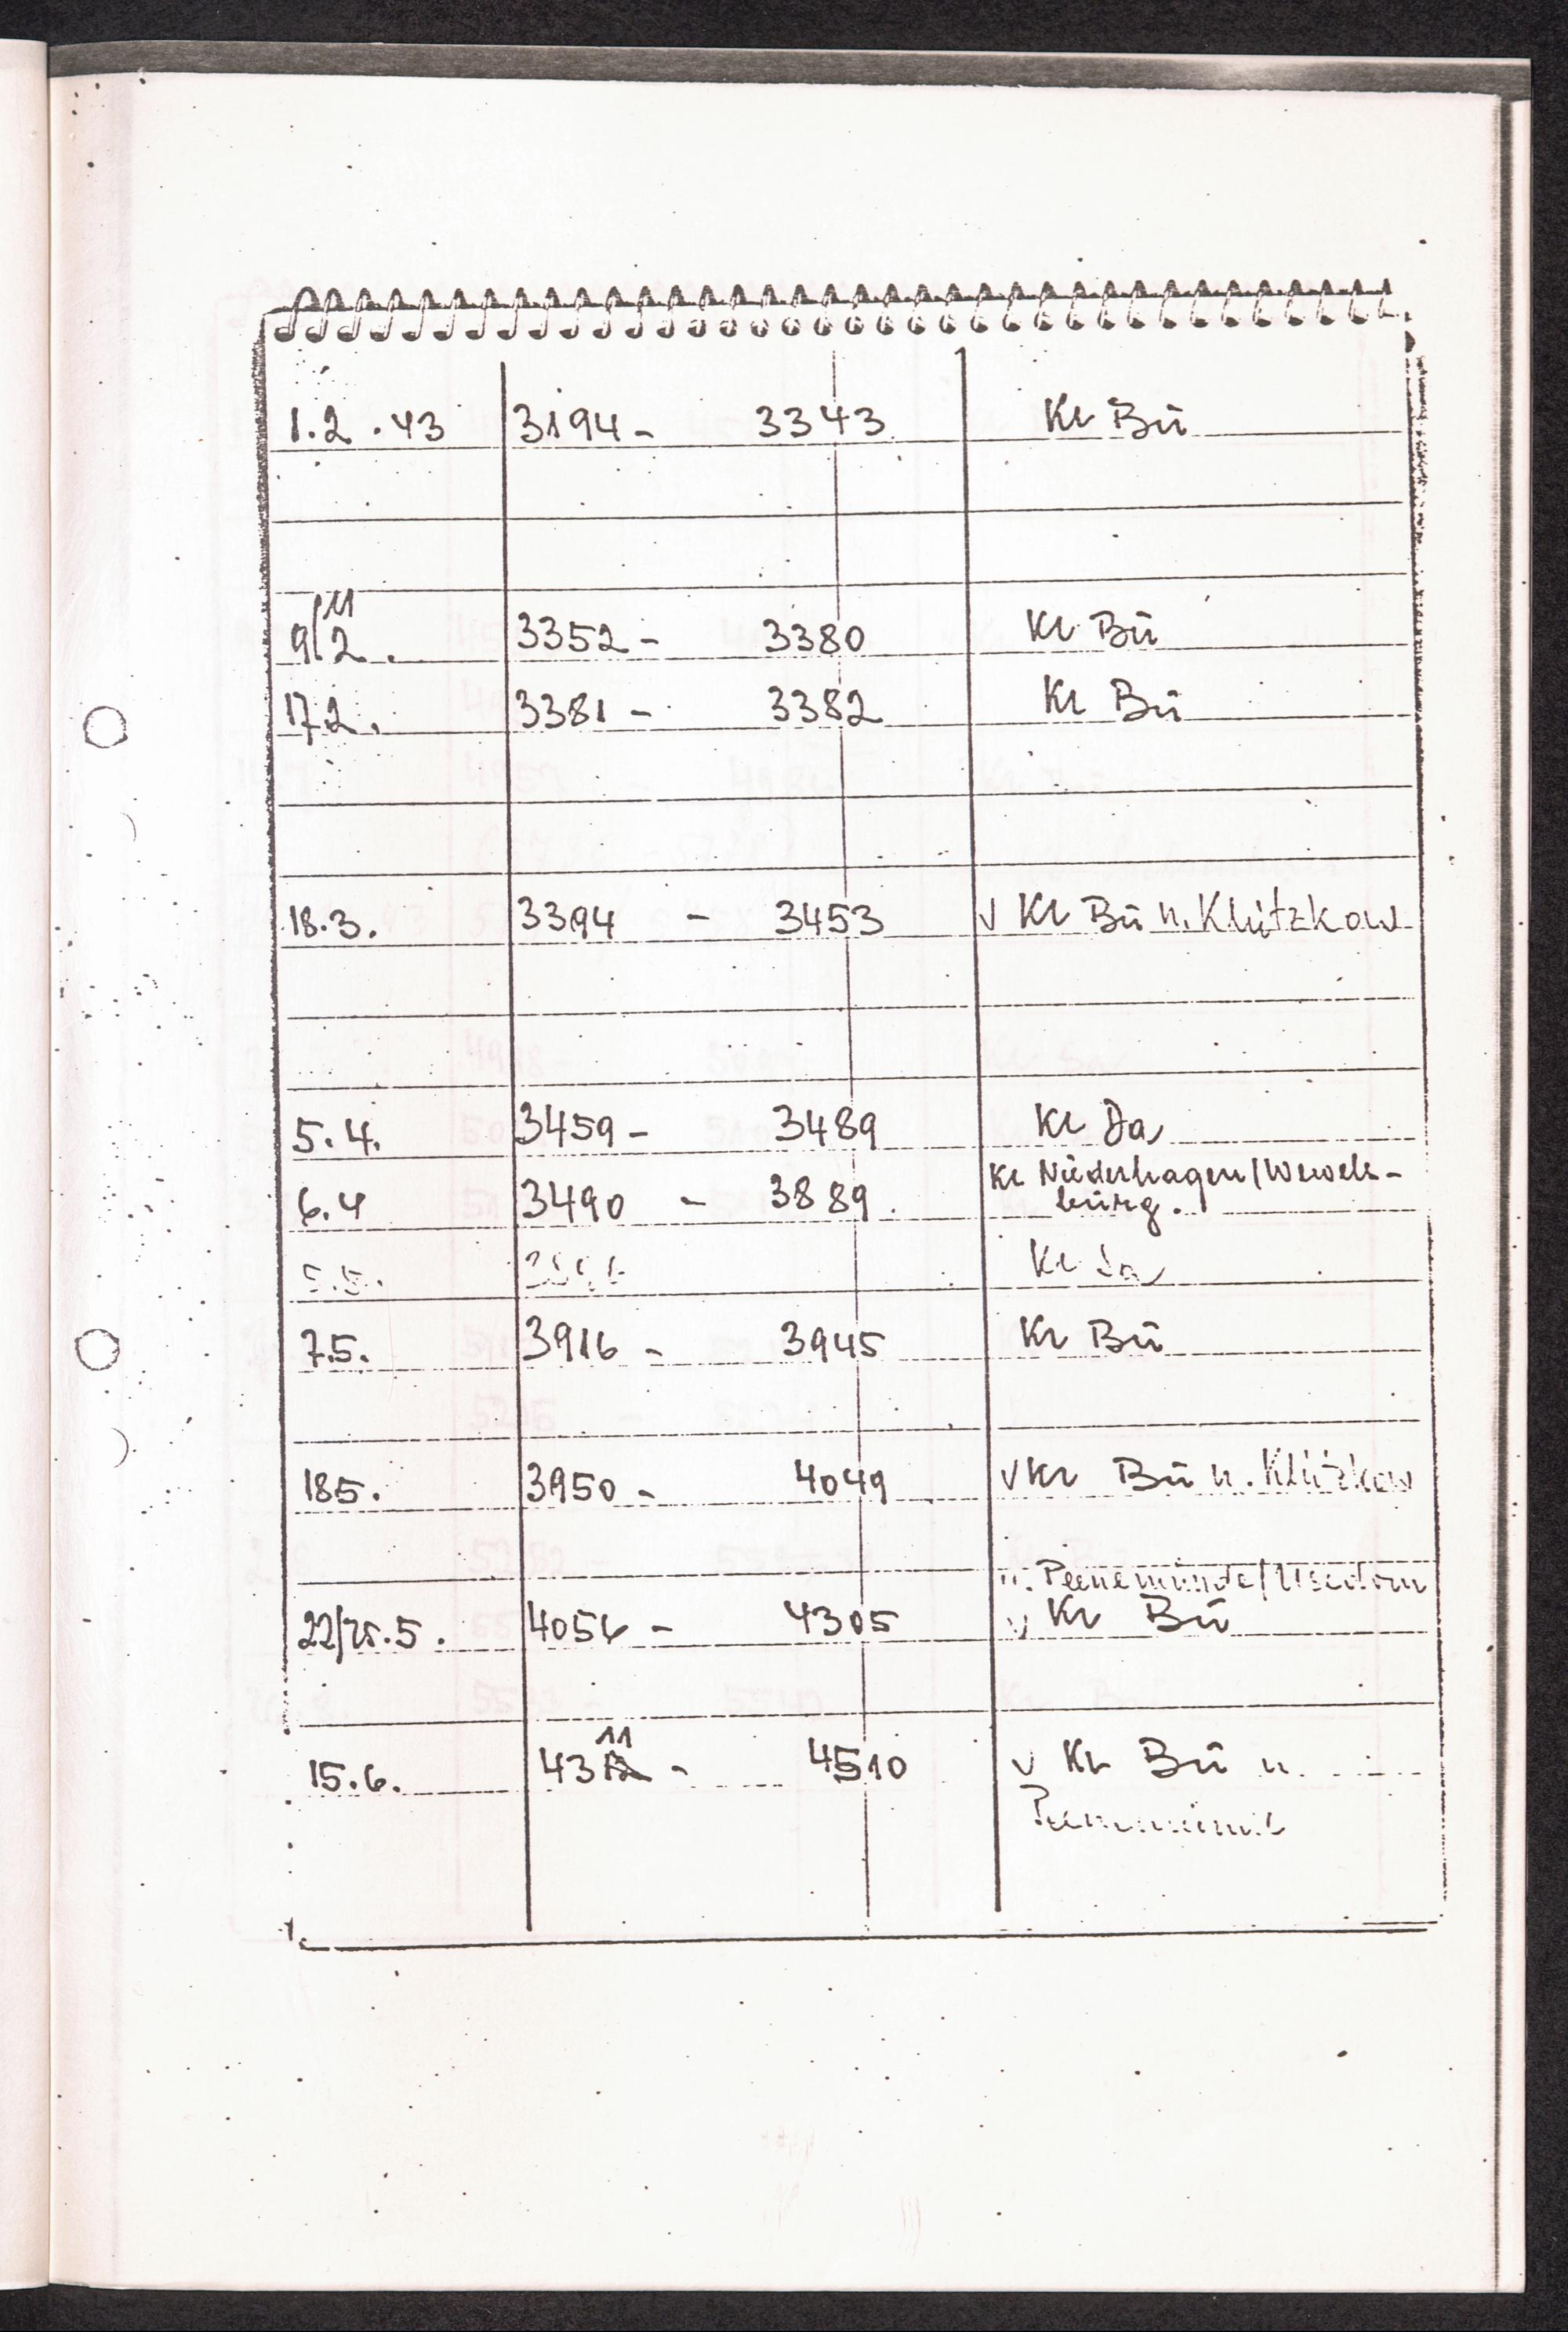 1.2.43 3194 - 3343 Kl Bū
9/11 2. 3352 - 3380 Kl Bū
17.2. 3381 - 3382 Kl Bū
18.3. 3394 - 3453 v Kl Bū n. Klützkow
5.4. 3459 - 3489 Kl Da
6.4 3490 - 3889. Kl Niederhagen/Wewels-
burg.
5.5. Kl Da
7.5. 3916 - 3945 Kl Bū
18.5. 3950 - 4049 v Kl Bū n. Klützkow
n. Peenemünde/Usedom
22/25.5. 4056 - 4305 v Kl Bū
11
15.6. 4312 - 4510 v Kl Bū n.
Peenemünde